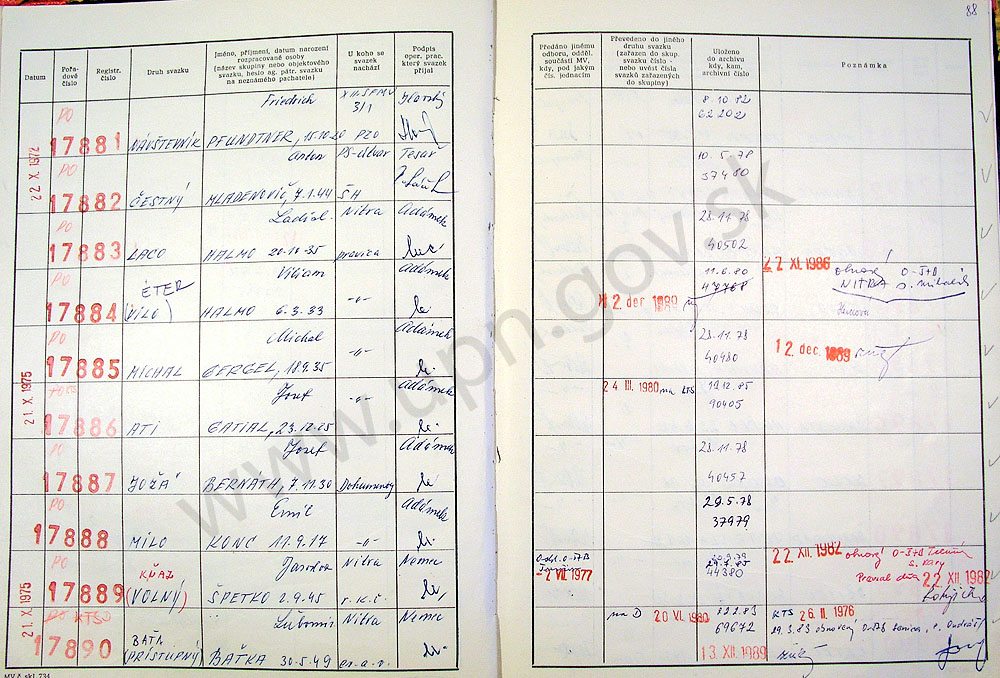 88
Datum
Pořa-
dové
číslo
Registr.
číslo
Druh svazku
Jméno, příjmení, datum narození
rozpracované osoby
(název skupiny nebo objektového
svazku, heslo ag. pátr. svazku
na neznámého pachatele)
U koho se
svazek
nachází
Podpis
oper. prac.
který svazek
přijal
Předáno jinému
odboru, odděl.
součásti MV,
kdy, pod jakým
čís. jednacím
Převedeno do jiného
druhu svazku
(zařazen do skup.
svazku číslo -
nebo uvést čísla
svazků zařazených
do skupiny)
Uloženo
do archivu
kdy, kam,
archivní číslo
Poznámka
22 X. 1972
PO
17881
NÁVŠTEVNÍK
Friedrich
PFUNDTNER, 15.10.20
8.10.82
62202
PO
17882
ČESTNÝ
Anton
MLADENOVIČ, 7.1.44
PS-Útvar
ŠH
Tesar
10.5.78
37480
PO
17883
LACO
Ladisl.
HALMO 20.10.35
Nitra
pravica
Adámek
28.11.78
40502
PO
17884
ÉTER
(VILO)
Viliam
HALMO 6.3.33
-"-
Adámek
12 dec 1989
11.6.80
27. XI. 1986
obnovený O-ŠtB
NITRA
PO
17885
MICHAL
Michal
GERGEL, 18.9.35
-"-
Adámek
28.11.78
40480
12. dec. 1989
21 X. 1975
17886
ATI
Jozef
GATIAL, 23.12.25
-"-
Adámek
24 III. 1980 na KTS
19.12.85
90405
PO
17887
JOŽÁ
Jozef
BERNÁTH, 7.11.30
Dokumenty
Adámek
28.11.78
40457
PO
17888
MILO
Emil
KONC 11.9.17
-"-
Adámek
29.5.78
37979
21 X. 1975
PO
17889
KŇAZ
(VOLNÝ)
Jaroslav
ŠPETKO 2.9.45
Nitra
r.k.c.
Nemec
- 2 VII. 1977
44380
22. XII. 1982
obnový O-ŠtB Trenčín
Prevzal dňa 22 XII. 1982
PO KTS
17890
BAŤA
(PRÍSTUPNÝ)
Ľubomír
BAŤKA 30.5.49
Nitra
ev.a.v.
Nemec
na D 20 VI. 1980
69672
13. XII. 1989
KTS 26. II. 1976
29.3.83 obnovený O-ŠtB Senica,
MV č. skl. 734
www.upn.gov.sk